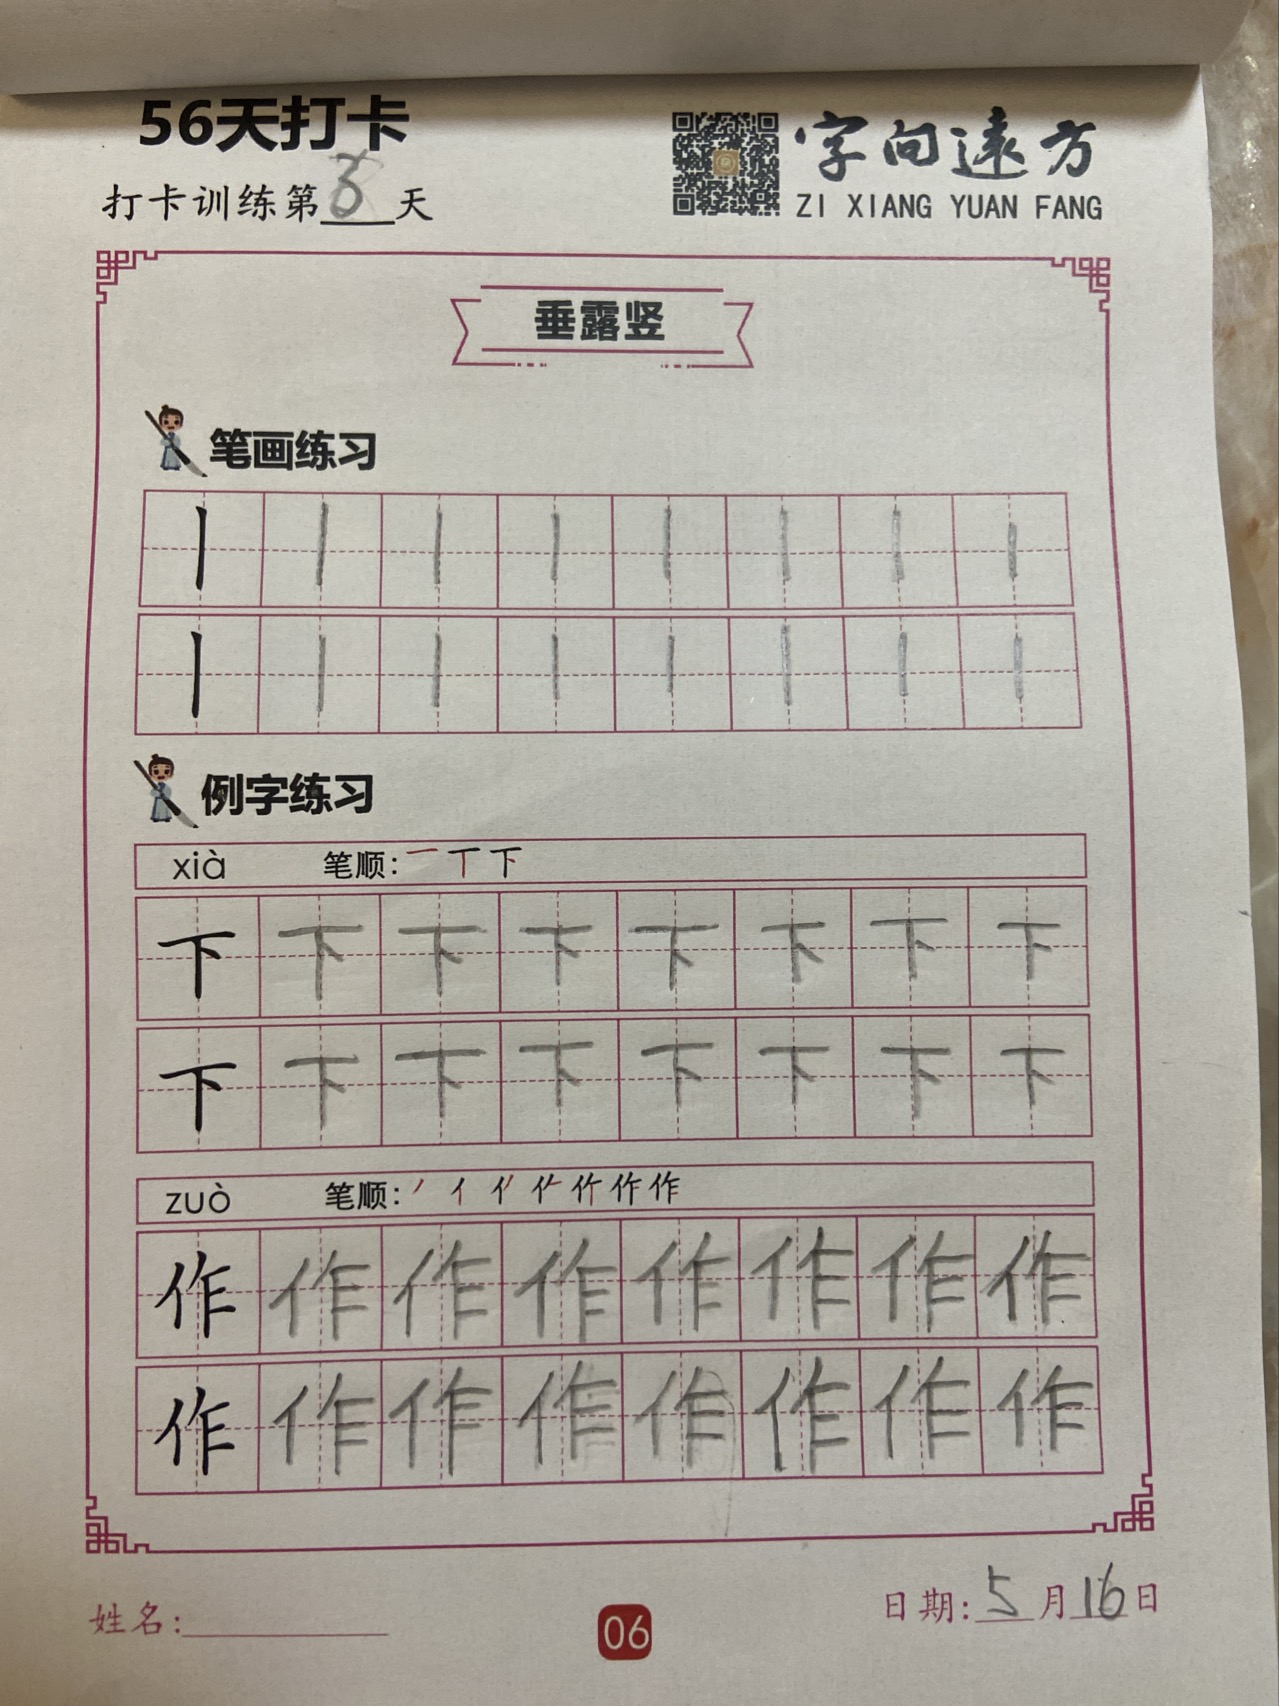 56天打卡
字向遠方
打卡训练第 天
ZI XIANG YUAN FANG
垂露竖
笔画练习
丨丨丨丨丨丨丨丨
丨丨丨丨丨丨丨丨
例字练习
xià 笔顺: 一 丅 下
下下下下下下下下
下下下下下下下下
zuò 笔顺: 作
作作作作作作作作
作作作作作作作作
姓名:
06
日期:5月16日